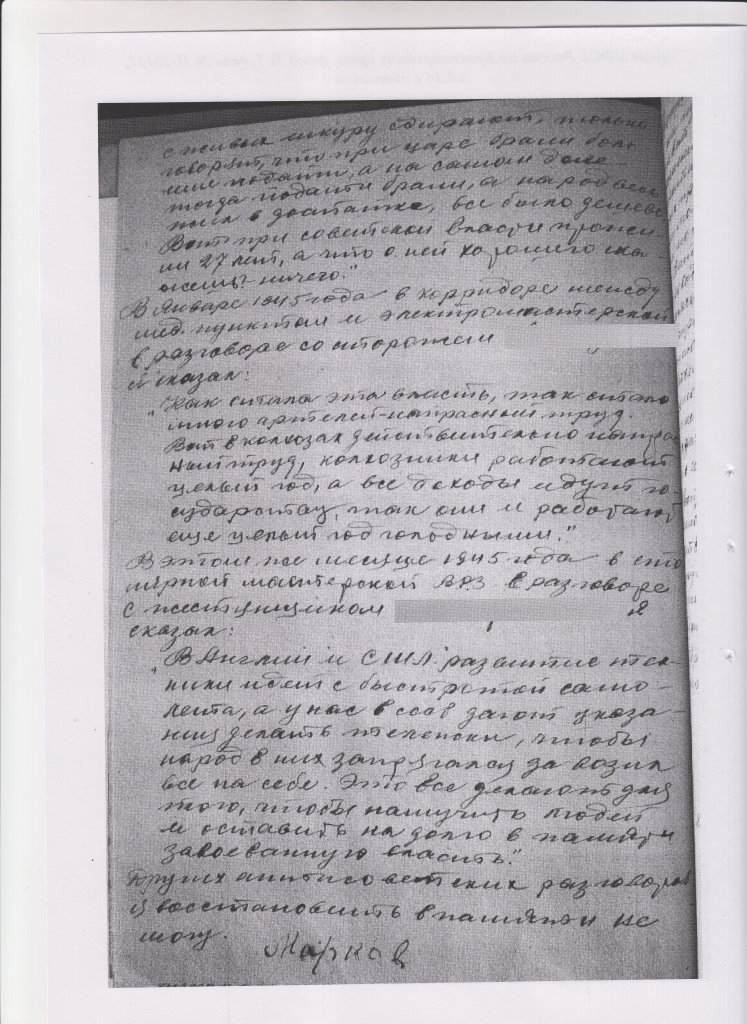 с живых шкуру сдирают, только
говорят, что при царе брали боль
шие подати, а на самом деле
тогда подати брали, а народ
жил в достатке, все было дешево
Вот при советской власти прожи
ли 27 лет, а что о ней хорошего ска
жешь ничего."
В Январе 1945 года в корридоре между
мед. пунктом и электромастерской
в разговоре со сторожем
Я сказал:
"Как стала эта власть, так стало
много артелей-напрасный труд.
Вот в колхозах действительно напра
ный труд, колхозники работают
целый год, а все доходы идут го-
сударству, так они и работают
еще целый год голодными."
В этом же месяце 1945 года в сто
лярной мастерской ВРЗ в разговоре
с жестянщиком я
сказал:
"В Англии и США развитие тех-
ники идет с быстротой само-
лета, а у нас в дают указа-
ния делать тележки, чтобы
народ в них запрягался да возил
все на себе. Это все делают для
того, чтобы намучить людей
и оставить на долго в памяти
завоеванную власть."
Других антисоветских разговоров
я восстановить в памяти не
могу.
Марков